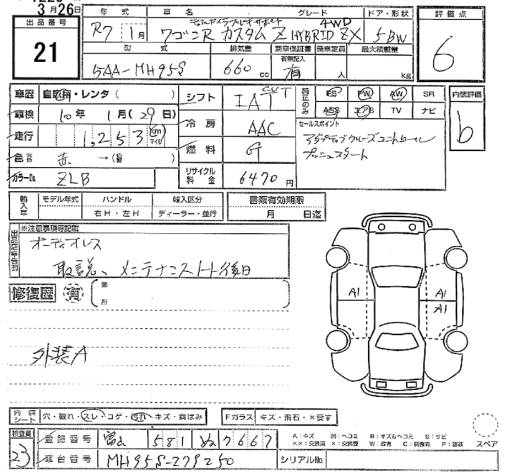 3月26日
出品番号 年式 車名 グレード ドア・形状 評価点
21 R7 1月 ワゴンR カスタム Z HYBRID ZX 4WD 5 BW 6
型式 排気量 新車保証書 乗車定員 最大積載量
有無記入
5AA-MH95S 660 cc 有 人 kg
車歴 自家用・レンタ( ) シフト IAT CVT PS PW AW SR 内装評価
車検 10年 1月(29)日 冷房 AAC ABS エアB TV ナビ b
走行 1,253 km マイル セールスポイント
色 赤 →( ) 燃料 G アダプティブクルーズコントロール
カラーNo. ZLB リサイクル料金 6470円 プッシュスタート
輸入車 モデル年式 ハンドル 輸入区分 書類有効期限
右H・左H ディーラー・並行 月 日迄
※注意事項等記載
オーディオレス
取説、メンテナンスノート後日
修復歴 有 箇所
A1
A1
外装A
内評シート 穴・破れ・スレ・コゲ・汚れ・キズ・黄ばみ Fガラス キズ・飛石・×要す
検査員 登録番号 581 ぬ 7667 スペア
23 車台番号 MH95S-279250 シリアルNo.